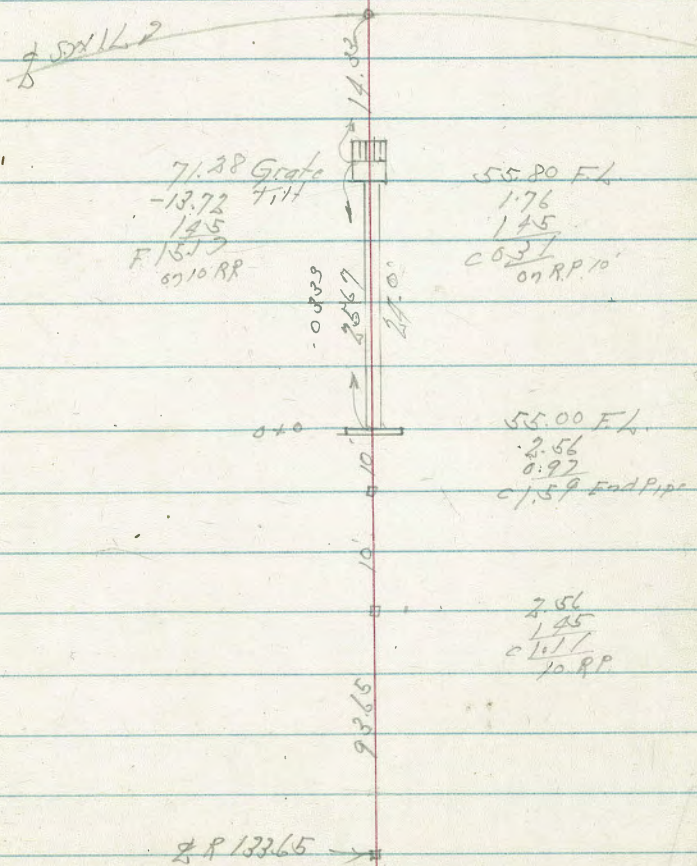 14.33
71.28 Grate
-13.72 Tilt
1.45
F 15.17
on 10 RP
55.80 F.L.
1.76
1.45
C 0.31
on R.P. 10'
.0333
24.0'
0+0
55.00 F.L.
2.56
0.97
C 1.59 End Pipe
10'
10'
2.56
1.45
C 1.11
10' R.P.
93.65
℄ R 133.65